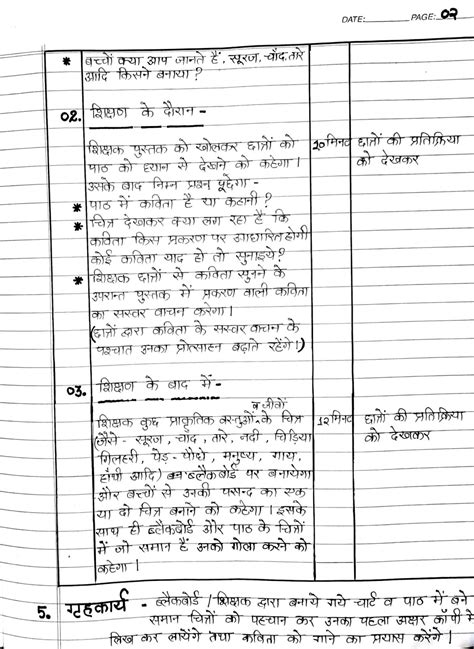 DATE: PAGE: 02
* बच्चों क्या आप जानते हैं, सूरज, चाँद, तारे
आदि किसने बनाया ?
02. शिक्षण के दौरान -
शिक्षक पुस्तक को खोलकर छात्रों को
पाठ को ध्यान से देखने को कहेगा।
उसके बाद निम्न प्रश्न पूछेगा -
20 मिनट छात्रों की प्रतिक्रिया
को देखकर
* पाठ में कविता है या कहानी ?
* चित्र देखकर क्या लग रहा है कि
कविता किस प्रकरण पर आधारित होगी
कोई कविता याद हो तो सुनाइये?
* शिक्षक छात्रों से कविता सुनने के
उपरान्त पुस्तक में प्रकरण वाली कविता
का सस्वर वाचन करेगा।
(छात्रों द्वारा कविता के सस्वर वाचन के
पश्चात उनका प्रोत्साहन बढ़ाते रहेंगे।)
03. शिक्षण के बाद में -
शिक्षक कुछ प्राकृतिक वस्तुओं व जीवों के चित्र
(जैसे - सूरज, चाँद, तारे, नदी, चिड़िया
गिलहरी, पेड़-पौधे, मनुष्य, गाय,
हाथी आदि) ब्लैकबोर्ड पर बनायेगा
और बच्चों से उनकी पसन्द का एक
या दो चित्र बनाने को कहेगा। इसके
साथ ही ब्लैकबोर्ड और पाठ के चित्रों
में जो समान हैं उनको गोला करने को
कहेगा।
12 मिनट छात्रों की प्रतिक्रिया
को देखकर
5. गृहकार्य - ब्लैकबोर्ड / शिक्षक द्वारा बनाये गये चार्ट व पाठ में बने
समान चित्रों को पहचान कर उनका पहला अक्षर कॉपी में
लिख कर लायेंगे तथा कविता को गाने का प्रयास करेंगे।